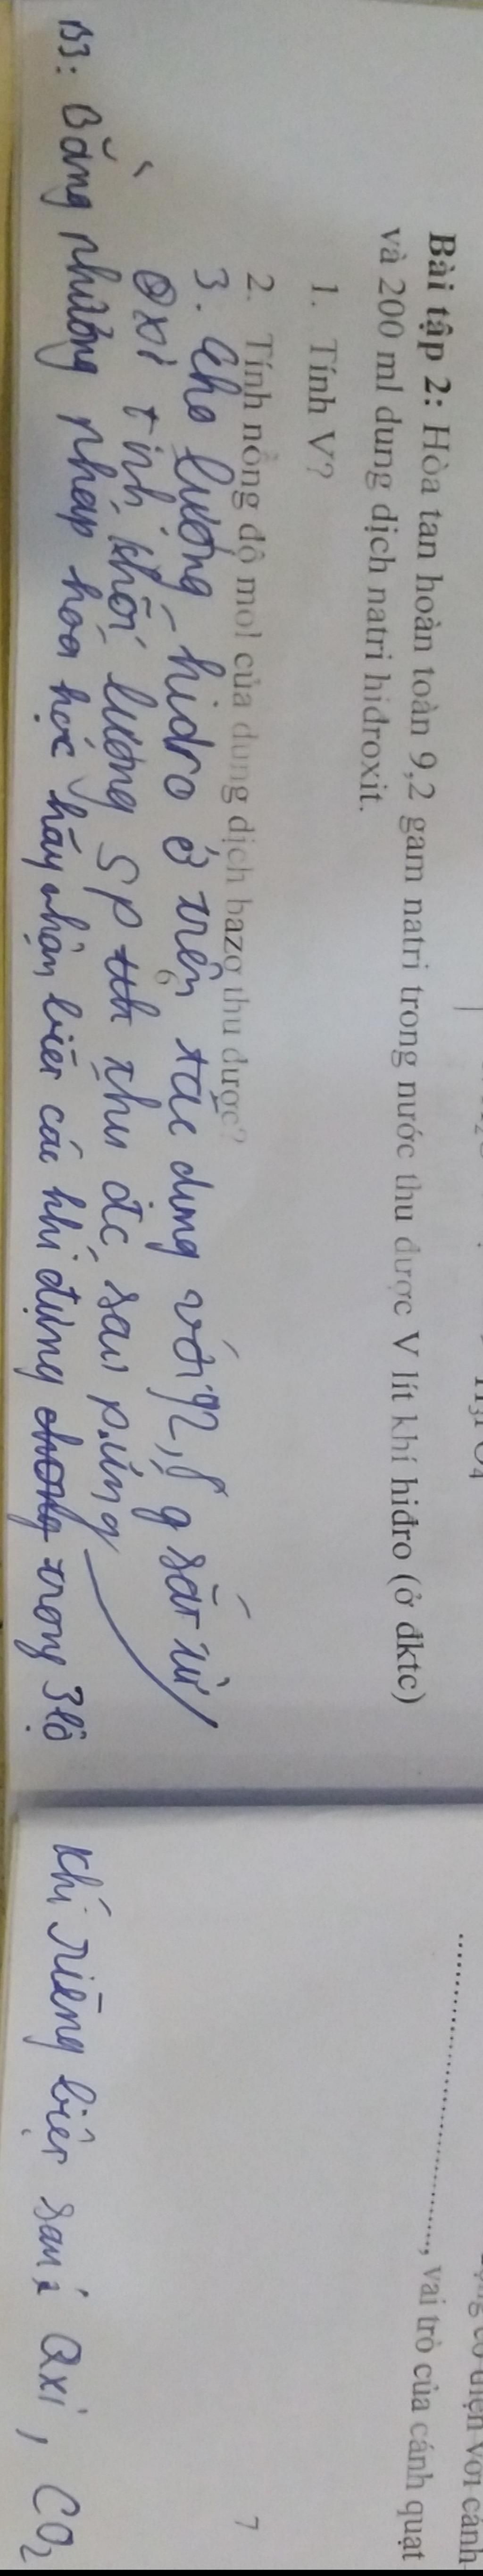 Bài tập 2: Hòa tan hoàn toàn 9,2 gam natri trong nước thu được V lít khí hiđro (ở đktc)
và 200 ml dung dịch natri hiđroxit.
1. Tính V?
2. Tính nồng độ mol của dung dịch bazơ thu được?
3. Cho lượng hidro ở trên tác dụng với g sắt từ
Oxi tính khối lượng SP thu đc sau p.ứng
B3: Bằng phương pháp hóa học hãy nhận biết các khí đựng trong 3 lọ
khí riêng biệt sau: Oxi, CO2
, vai trò của cánh quạt
có điện với cánh
7